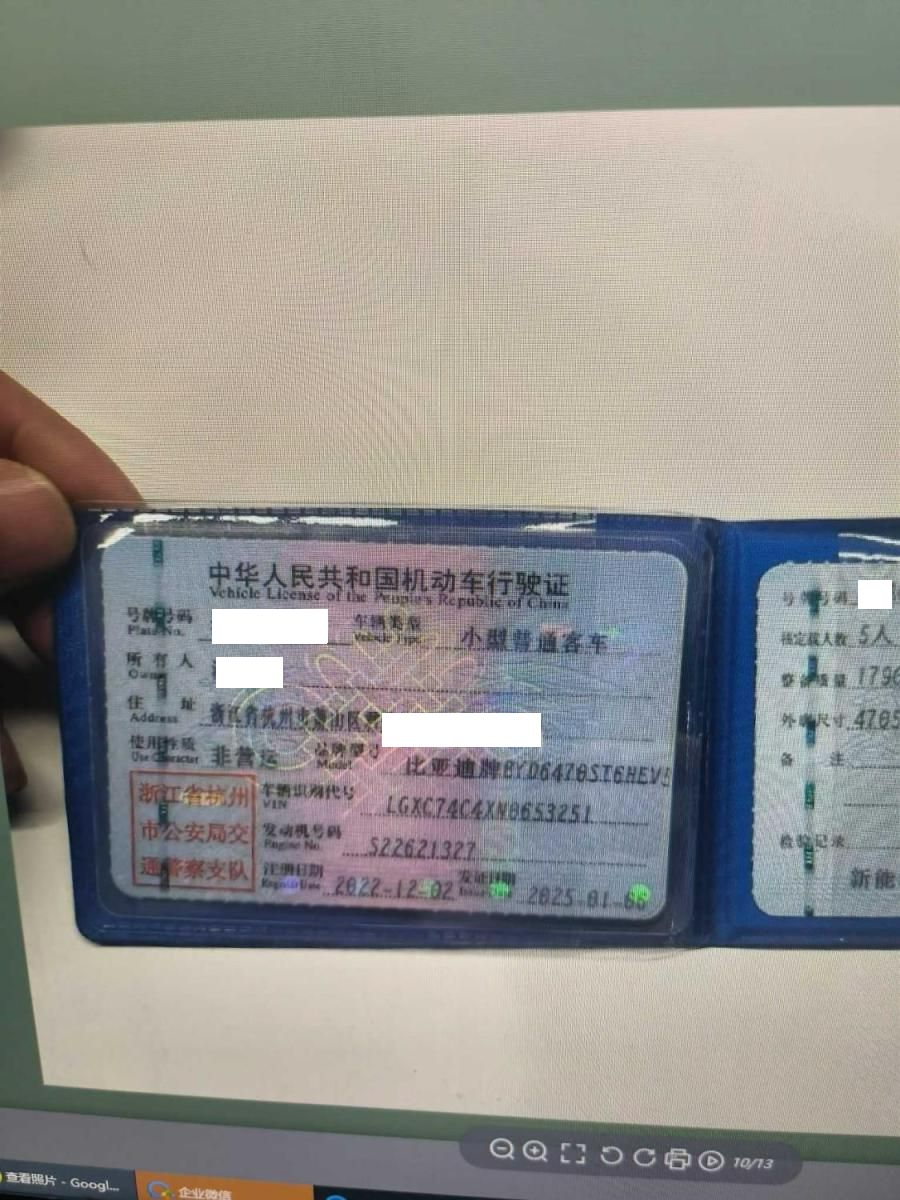 中华人民共和国机动车行驶证
Vehicle License of the People's Republic of China
号牌号码
Plate No.
车辆类型
Vehicle Type
小型普通客车
所有人
Owner
住址
Address
浙江省杭州市萧山区
使用性质
Use Character
非营运
品牌型号
Model
比亚迪牌BYD6470ST6HEV5
浙江省杭州
市公安局交
通警察支队
车辆识别代号
VIN
LGXC74C4XN0653251
发动机号码
Engine No.
S22621327
注册日期
Register Date
2022-12-02
发证日期
Issue Date
2025-01-
号牌号码
核定载人数 5人
整备质量 179
外廓尺寸 4705
备注
检验记录
新能
10/13
查看照片 - Googl...
企业微信